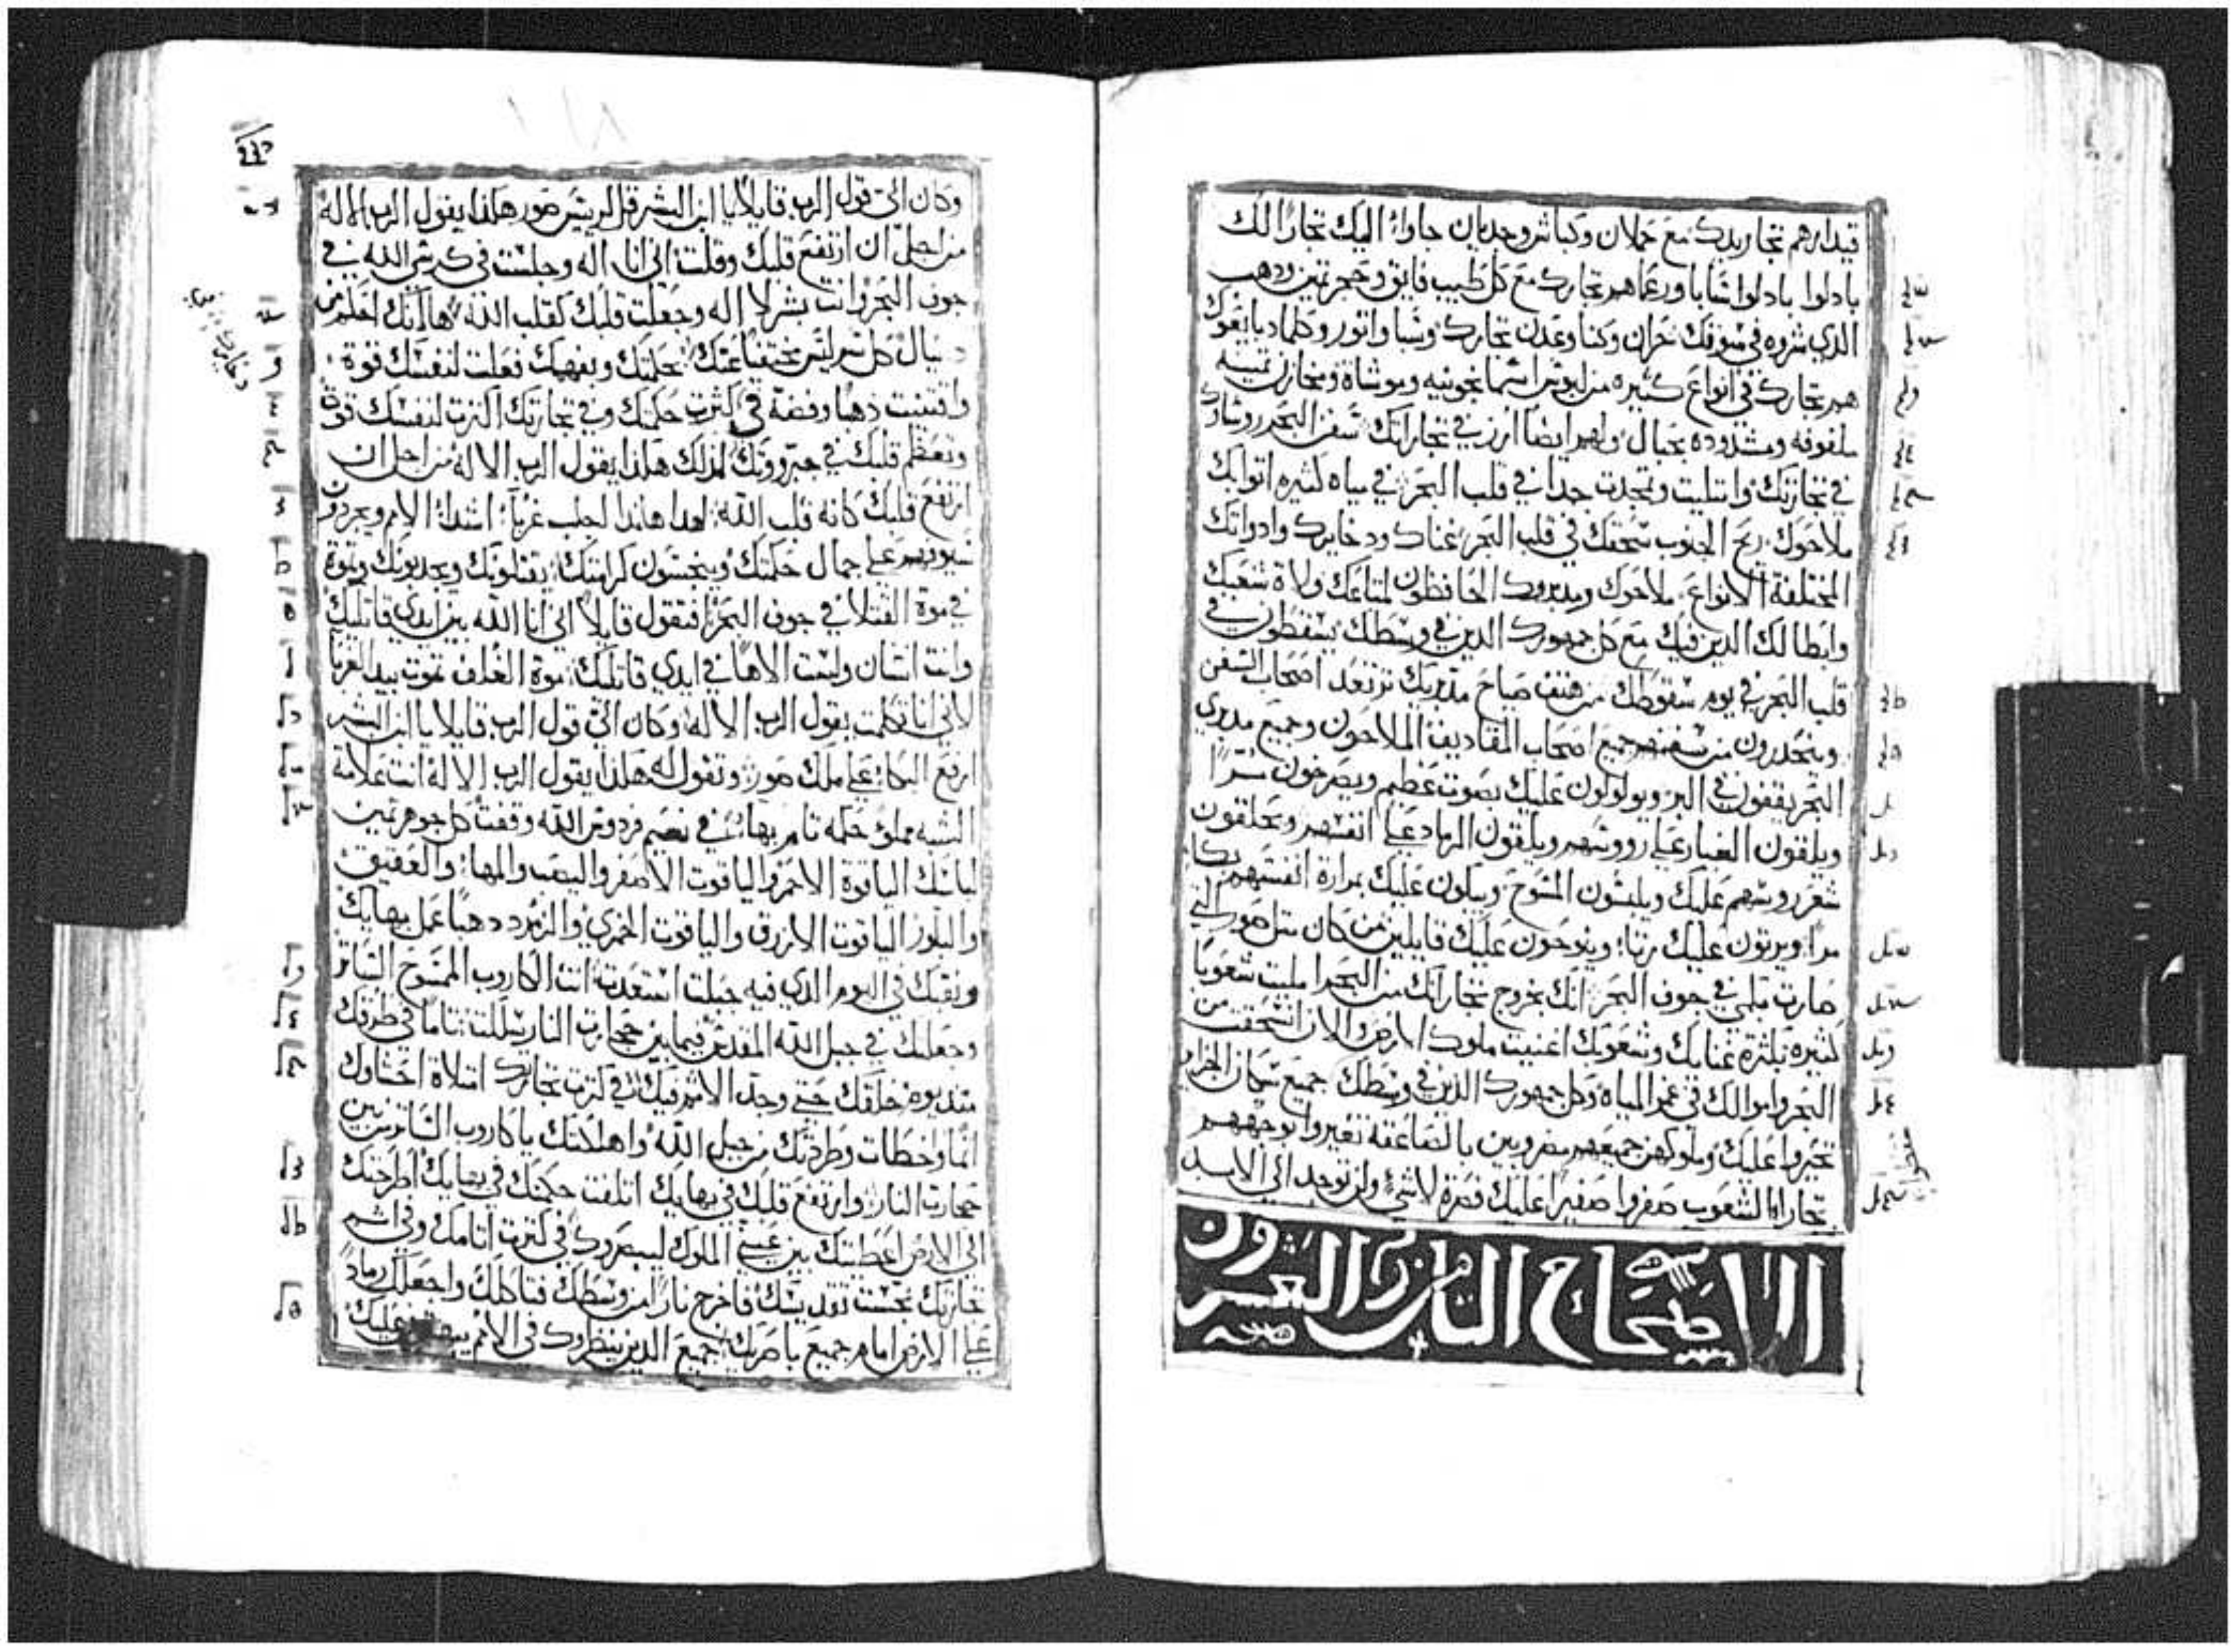 قيدار هم تجار يدك مع حملان وكباش وجديان جاوا اليك تجارا لك
بادلوا بادلوا شابا ورعما هم تجارك مع كل طيب فايق وحجر تمين ودهب
الدي شروه في سوقك حران وكنا وعدن تجارك وشبا واتور وكلماد بايعوك
هم تجارك في انواع كثيره من لبوس اسمانجونيه وموشاة ومخازن تمينه
ملفوفه ومشدوده بحبال ولهم ايضا ارز في تجاراتك سفن البحر روساك
في تجارتك وامتليت وتمجدت جدا في قلب البحر في مياه كثيره اتوا بك
ملاحوك ريح الجنوب سحقك في قلب البحر غناك ودخايرك وادواتك
المختلفة الانواع ملاحوك ومدبروك الحافظون لمتاعك ولاة شعبك
وابطالك الدين فيك مع كل جمهورك الدين في وسطك يسقطون في
قلب البحر في يوم سقوطك من هتف صياح مدبريك ترتعد اصحاب السفن
وينحدرون من سفنهم جميع اصحاب المقاديف الملاحون وجميع مدبري
البحر يقفون في البر ويولولون عليك بصوت عظيم ويصرخون مرا
ويلقون الغبار علي رووسهم ويلقون الرماد علي انفسهم ويحلقون
شعر روسهم عليك ويلبسون المسوح ويبكون عليك بمرارة انفسهم بكا
مرا ويرتون عليك رتا وينوحون عليك قايلين من كان متل صور التي
صارت متلهي في جوف البحر انك بخروج تجاراتك من البحر امليت شعوبا
كثيره بكثرة غنايك وشعوبك اغنيت ملوك الارض الان انسحقت من
البحر واموالك في عمق المياه وكل جمهورك الدين في وسطك جميع سكان الجزاير
تحيروا عليك وملوكهن جميعهم مضروبين بالصاعقه تغيروا بوجههم
تجار الشعوب صفروا صفيرا عليك فصرة لاشي ولن توجد الي الابد
الاصحاح التامن والعشرون
وكان الي قول الرب قايلا يا ابن البشر قل لريس صور هكذا يقول الرب الاله
من اجل ان ارتفع قلبك وقلت اني انا اله وجلست في كرسي الله في
جوف البحر وانت بشر لا اله وجعلت قلبك كقلب الله ها انك احكم من
دنيال كل سر ليس مختفيا عنك بحكمتك وبفهمك فعلت لنفسك قوة
واقتنيت ذهبا وفضة في كثرت حكمتك وفي تجارتك اكترت لنفسك قوة
وتعظم قلبك في جبروتك لذلك هكذا يقول الرب الاله من اجل ان
ارتفع قلبك كانه قلب الله لهدا هاندا اجلب غربا اشدا الامم ويجردون
سيوفهم علي جمال حكمتك وينجسون كرامتك يقتلونك ويجدبونك وتموة
في موة القتلا في جوف البحر افتقول قايلا اني انا الله بين ايدي قاتليك
وانت انسان ولست الاها في ايدي قاتليك موة الغلف تموت بيد الغربا
لاني انا تكلمت يقول الرب الاله وكان الي قول الرب قايلا يا ابن البشر
ارفع البكا علي ملك صور وتقول له هكذا يقول الرب الاله انت علامة
الشبه مملو حكمه تام بهائك في نعيم فردوس الله وقفت كل جوهر تمين
لباسك الياقوة الاحمر والياقوت الاصفر واليصب والمها والعقيق
والبلور الياقوت الازرق والياقوت الخمري والزمرد دهبا عمل بهايك
ونقبك في اليوم الدي فيه جبلت استعدت انت الكاروب الممسوح الساتر
وجعلتك في جبل الله المقدس فيما بين حجارت النار سلكت تاما في طرقك
مند يوم خلقك حتي وجد الاثم فيك في كترت تجارتك امتلاة احشاوك
اثما واخطات وطردتك من جبل الله واهلكتك يا كاروب الساتر من بين
حجارت النار وارتفع قلبك في بهايك اتلفت حكمتك في بهايك اطرحتك
الي الارض اعطيتك بين عيني الملوك ليبصروك في كترت اتامك وفي اثم
تجارتك نجست تقديسك فاخرج نارا من وسطك فتاكلك واجعلك رمادا
علي الارض امام جميع باصريك جميع الدين ينظروك في الامم عليك